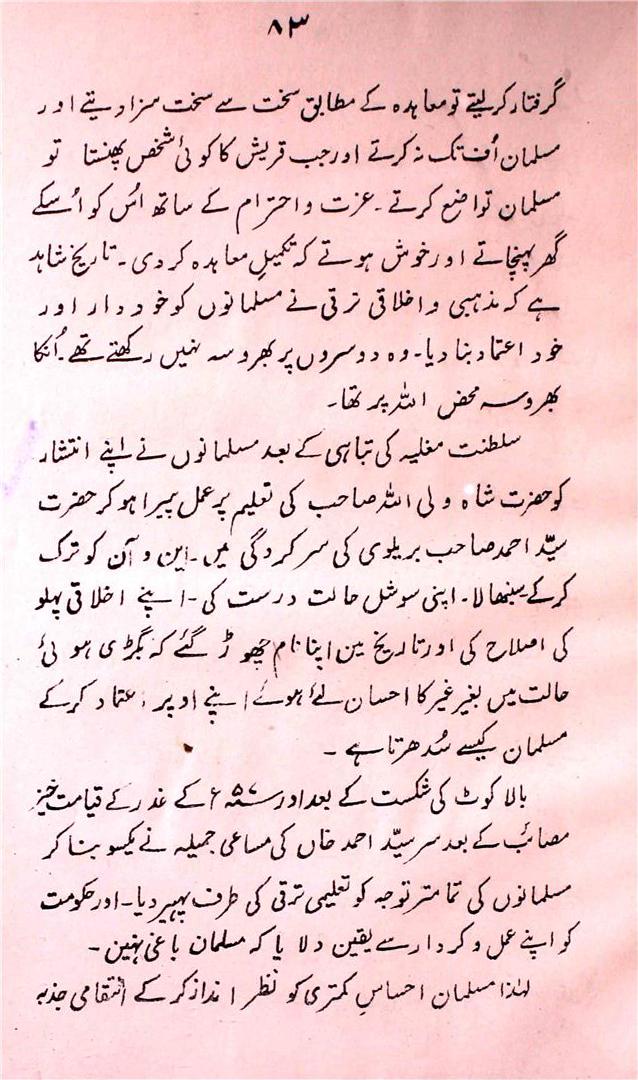 ۸۳
گرفتار کرلیتے تو معاہدہ کے مطابق سخت سے سخت سزا دیتے اور
مسلمان اُف تک نہ کرتے اور جب قریش کا کوئی شخص پھنستا تو
مسلمان تواضع کرتے۔ عزت و احترام کے ساتھ اُس کو اُسکے
گھر پہنچاتے اور خوش ہوتے کہ تکمیلِ معاہدہ کردی۔ تاریخ شاہد
ہے کہ مذہبی و اخلاقی ترقی نے مسلمانوں کو خود دار اور
خود اعتماد بنا دیا۔ وہ دوسروں پر بھروسہ نہیں رکھتے تھے۔ اُنکا
بھروسہ محض اللہ پر تھا۔
سلطنت مغلیہ کی تباہی کے بعد مسلمانوں نے اپنے انتشار
کو حضرت شاہ ولی اللہ صاحب کی تعلیم پر عمل پیرا ہوکر حضرت
سیّد احمد صاحب بریلوی کی سرکردگی میں۔ این و آن کو ترک
کرکے سنبھالا۔ اپنی سوشل حالت درست کی۔ اپنے اخلاقی پہلو
کی اصلاح کی اور تاریخ مین اپنا نام چھوڑ گئے کہ بگڑی ہوئی
حالت میں بغیر غیر کا احسان لئے ہوئے اپنے اوپر اعتماد کرکے
مسلمان کیسے سُدھرتا ہے۔
بالا کوٹ کی شکست کے بعد اور ۵۷ء کے غدر کے قیامت خیز
مصائب کے بعد سر سیّد احمد خاں کی مساعی جمیلہ نے یکسو بنا کر
مسلمانوں کی تمامتر توجہ کو تعلیمی ترقی کی طرف پھیر دیا۔ اور حکومت
کو اپنے عمل و کردار سے یقین دلایا کہ مسلمان باغی نہین۔
لہٰذا مسلمان احساسِ کمتری کو نظر انداز کرکے انتقامی جذبہ